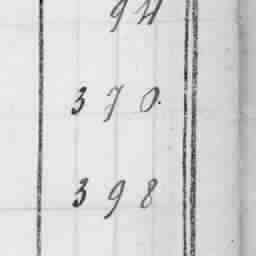 94
370.
398